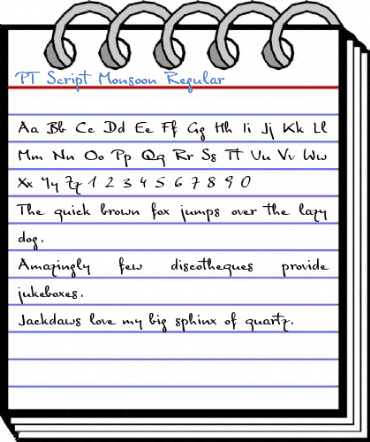 PT Script Monsoon Regular
Aa Bb Cc Dd Ee Ff Gg Hh Ii Jj Kk Ll
Mm Nn Oo Pp Qq Rr Ss Tt Uu Vv Ww
Xx Yy Zz 1 2 3 4 5 6 7 8 9 0
The quick brown fox jumps over the lazy
dog.
Amazingly few discotheques provide
jukeboxes.
Jackdaws love my big sphinx of quartz.